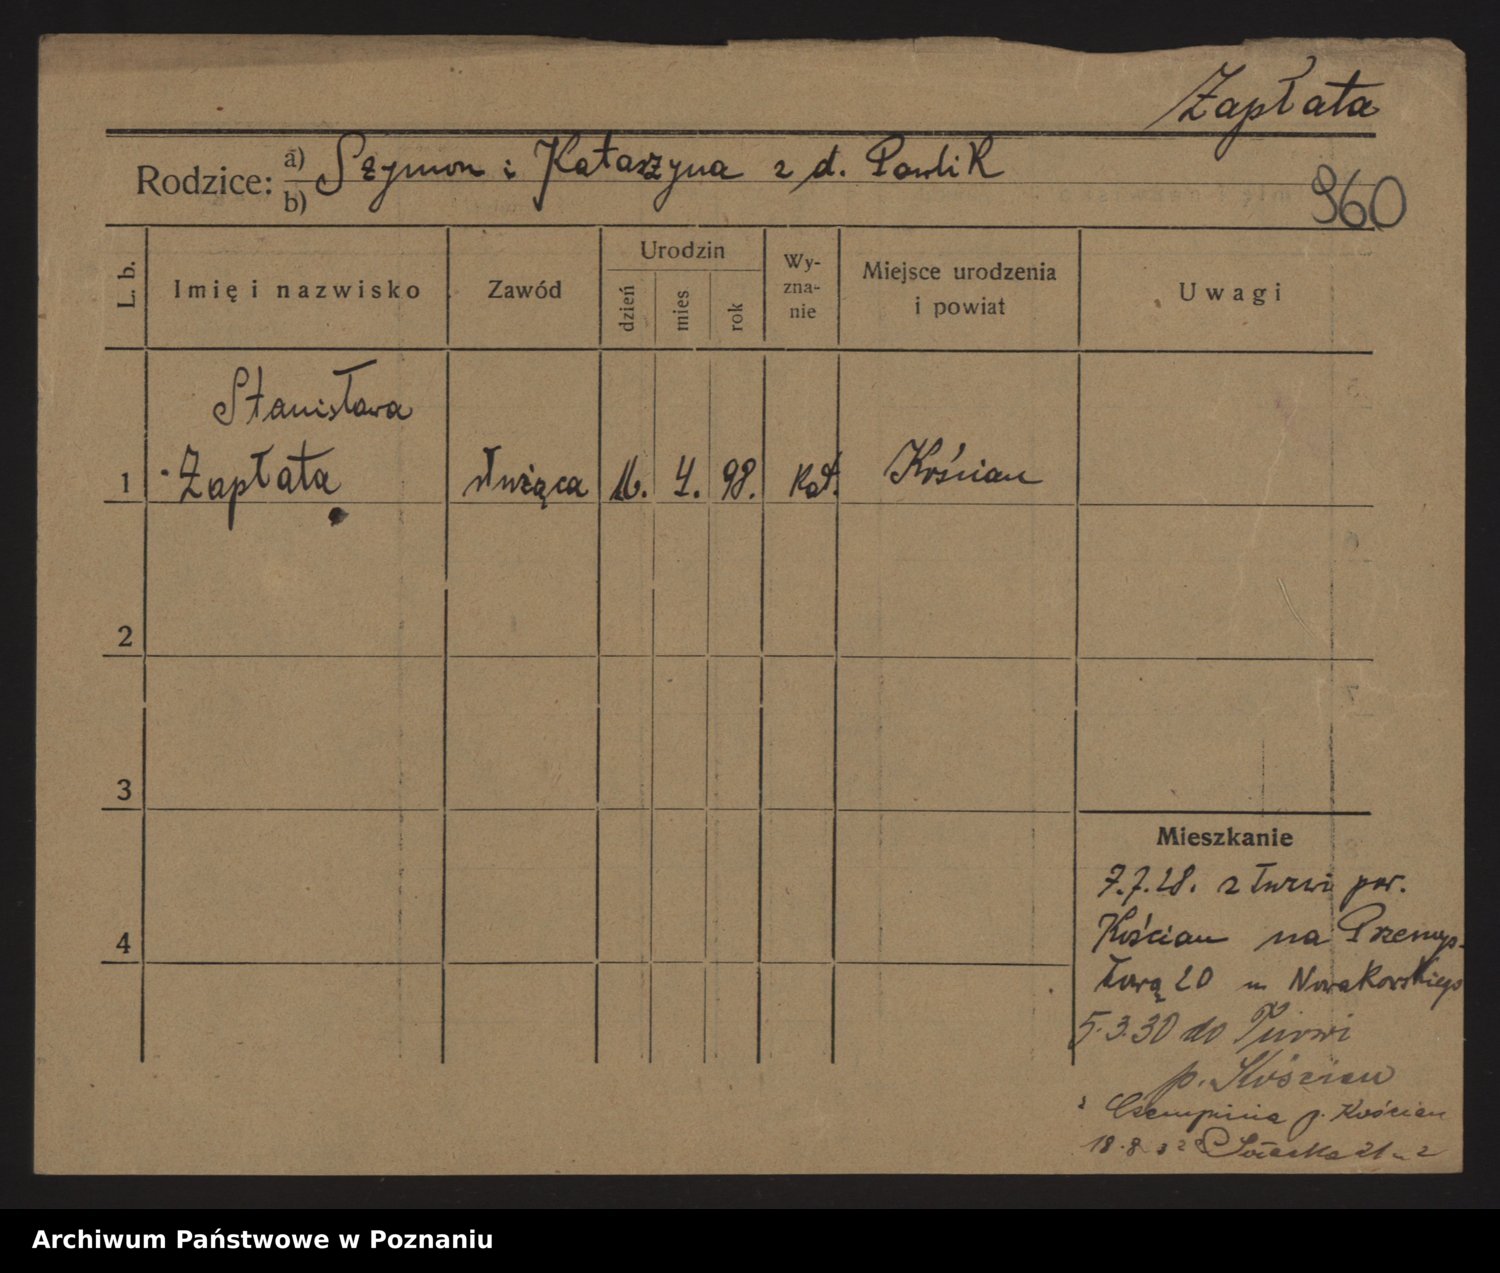 Zapłata
Rodzice: a) Szymon i Katarzyna z d. Pawlik
b)
960
L. b.
Imię i nazwisko
Zawód
Urodzin
dzień
mies
rok
Wy-
zna-
nie
Miejsce urodzenia
i powiat
Uwagi
Stanisława
1 Zapłata służąca 4. 98. kat. Kościan
2
3
4
Mieszkanie
7.7.28. z Turwi pow.
Kościan na Przemys-
łową 20 m Nowakowskiego
5.3.30 do Turwi
p. Kościan
z Czempinia p. Kościan
18.8.32 Sołacka 21 m 2
Archiwum Państwowe w Poznaniu